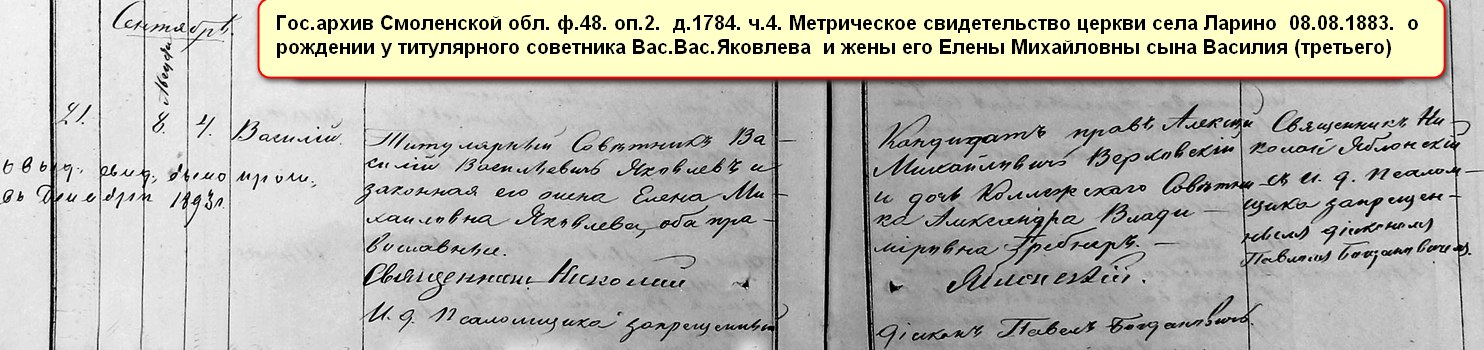 Гос.архив Смоленской обл. ф.48. оп.2. д.1784. ч.4. Метрическое свидетельство церкви села Ларино 08.08.1883. о
рождении у титулярного советника Вас.Вас.Яковлева и жены его Елены Михайловны сына Василия (третьего)
Сентябрь
21.
8.
4.
Василій.
было
1893г
Титулярный Совѣтникъ Ва-
силій Васильевичъ Яковлевъ и
законная его жена Елена Ми-
хаиловна Яковлева, оба пра-
вославные.
Священникъ Николай
И. д. Псаломщика запрещенный
Кандидатъ правъ Алексѣй
Михайловичъ Верховскій
и дочь Коллежскаго Совѣтни-
ка Александра Влади-
міровна Гребнеръ. —
Яблонскій.
діаконъ Павелъ Богдановичъ.
Священникъ Ни-
колай Яблонскій
съ И. д. Псалом-
щика запрещен-
нымъ діакономъ
Павломъ Богдановичемъ.